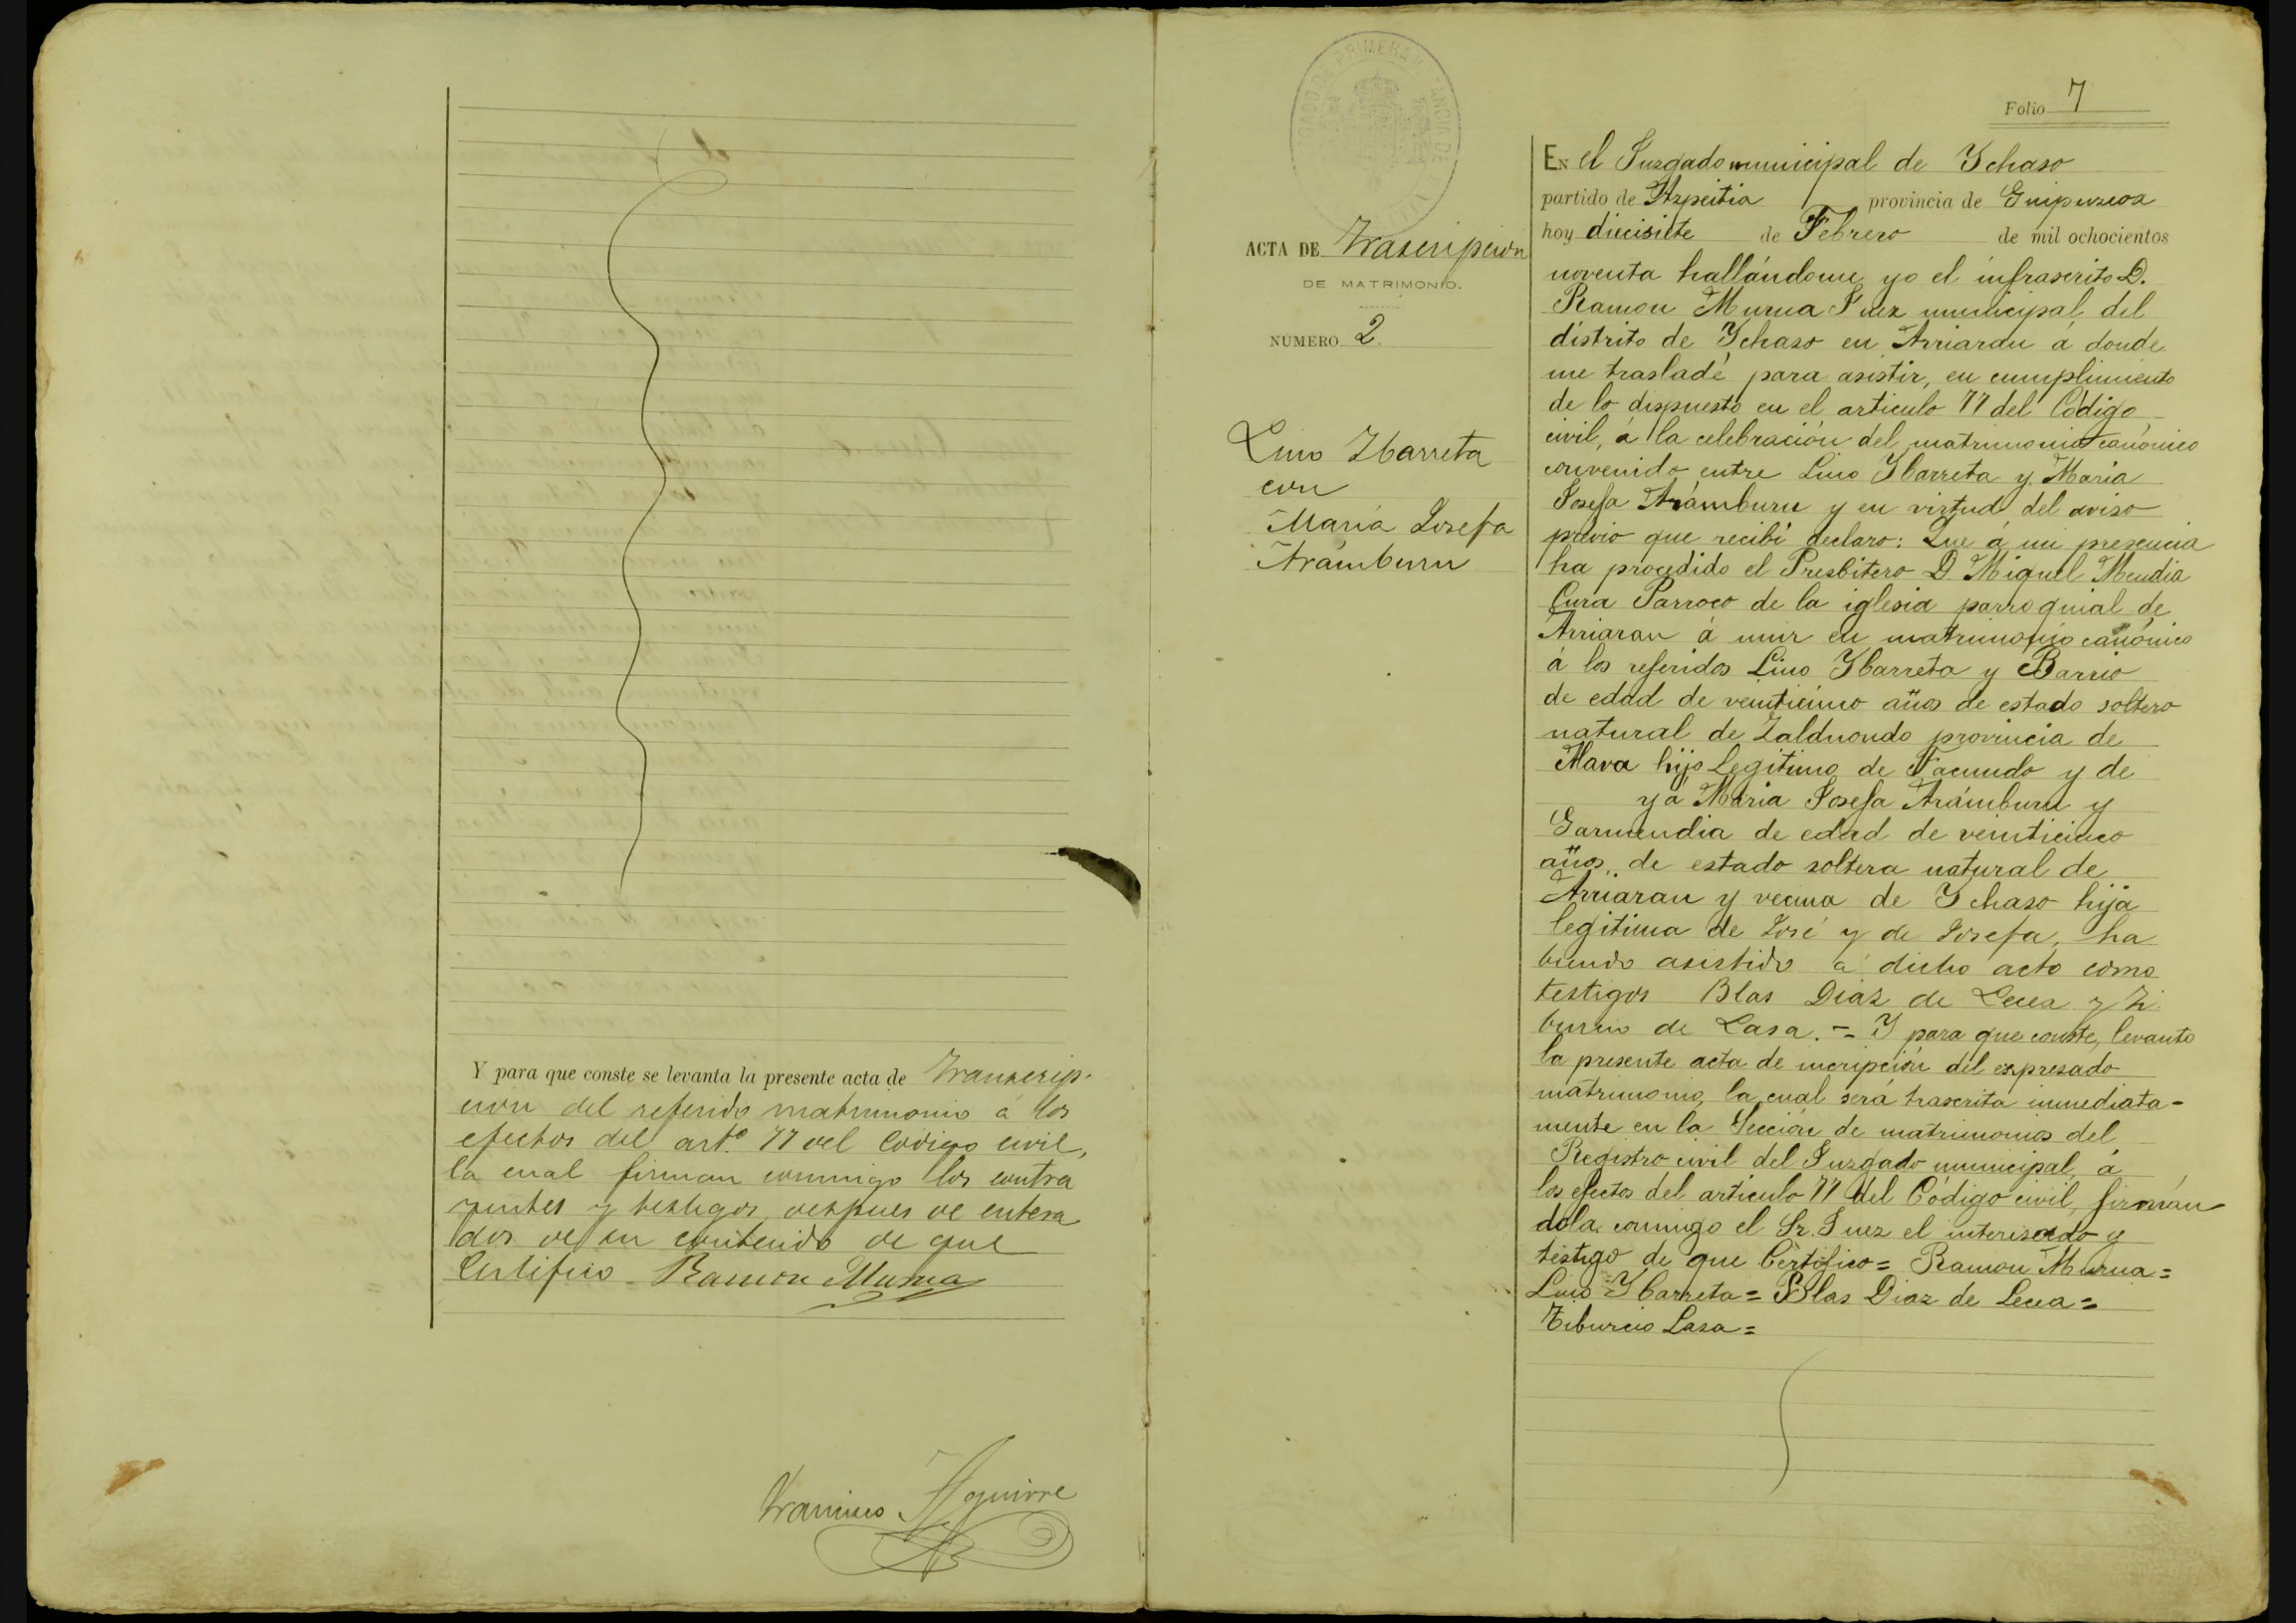 Y para que conste se levanta la presente acta de Transcrip-
cion del referido matrimonio á los
efectos del artº 77 del Codigo civil,
la cual firman conmigo los contra
yentes y testigos, despues de entera
dos de su contenido de que
Certifico - Ramon Murua
Francisco Aguirre
JUZGADO DE PRIMERA INSTANCIA DE
Folio 7
ACTA DE Trascripcion
DE MATRIMONIO.
NÚMERO 2.
Lino Ibarreta
con
María Josefa
Arámburu
EN el Juzgado municipal de Ychaso
partido de Azpeitia provincia de Guipuzcoa
hoy diecisiete de Febrero de mil ochocientos
noventa hallándome yo el infrascrito D.
Ramon Murua Juez municipal del
distrito de Ychaso en Arriaran á donde
me trasladé para asistir, en cumplimiento
de lo dispuesto en el articulo 77 del Código
civil, á la celebración del matrimonio canónico
convenido entre Lino Ybarreta y Maria
Josefa Arámburu y en virtud del aviso
prévio que recibí declaro: Que á mi presencia
ha procedido el Presbitero D. Miguel Mendia
Cura Parroco de la iglesia parroquial de
Arriaran á unir en matrimonio canónico
á los referidos Lino Ybarreta y Barrio
de edad de veinticinco años de estado soltero
natural de Zalduondo provincia de
Alava hijo legitimo de Facundo y de
y á Maria Josefa Arámburu y
Garmendia de edad de veinticinco
años, de estado soltera natural de
Arriaran y vecina de Ychaso hija
legitima de José y de Josefa, ha
biendo asistido á dicho acto como
testigos Blas Diaz de Lecea y Ti
burcio de Lasa. = Y para que conste, levanto
la presente acta de incripción del expresado
matrimonio, la cual será trascrita inmediata-
mente en la Sección de matrimonios del
Registro civil del Juzgado municipal á
los efectos del articulo 77 del Código civil, firmán
dola conmigo el Sr. Juez el interesado y
testigo de que Certifico = Ramon Murua =
Lino Ybarreta = Blas Diaz de Lecea =
Tiburcio Lasa =